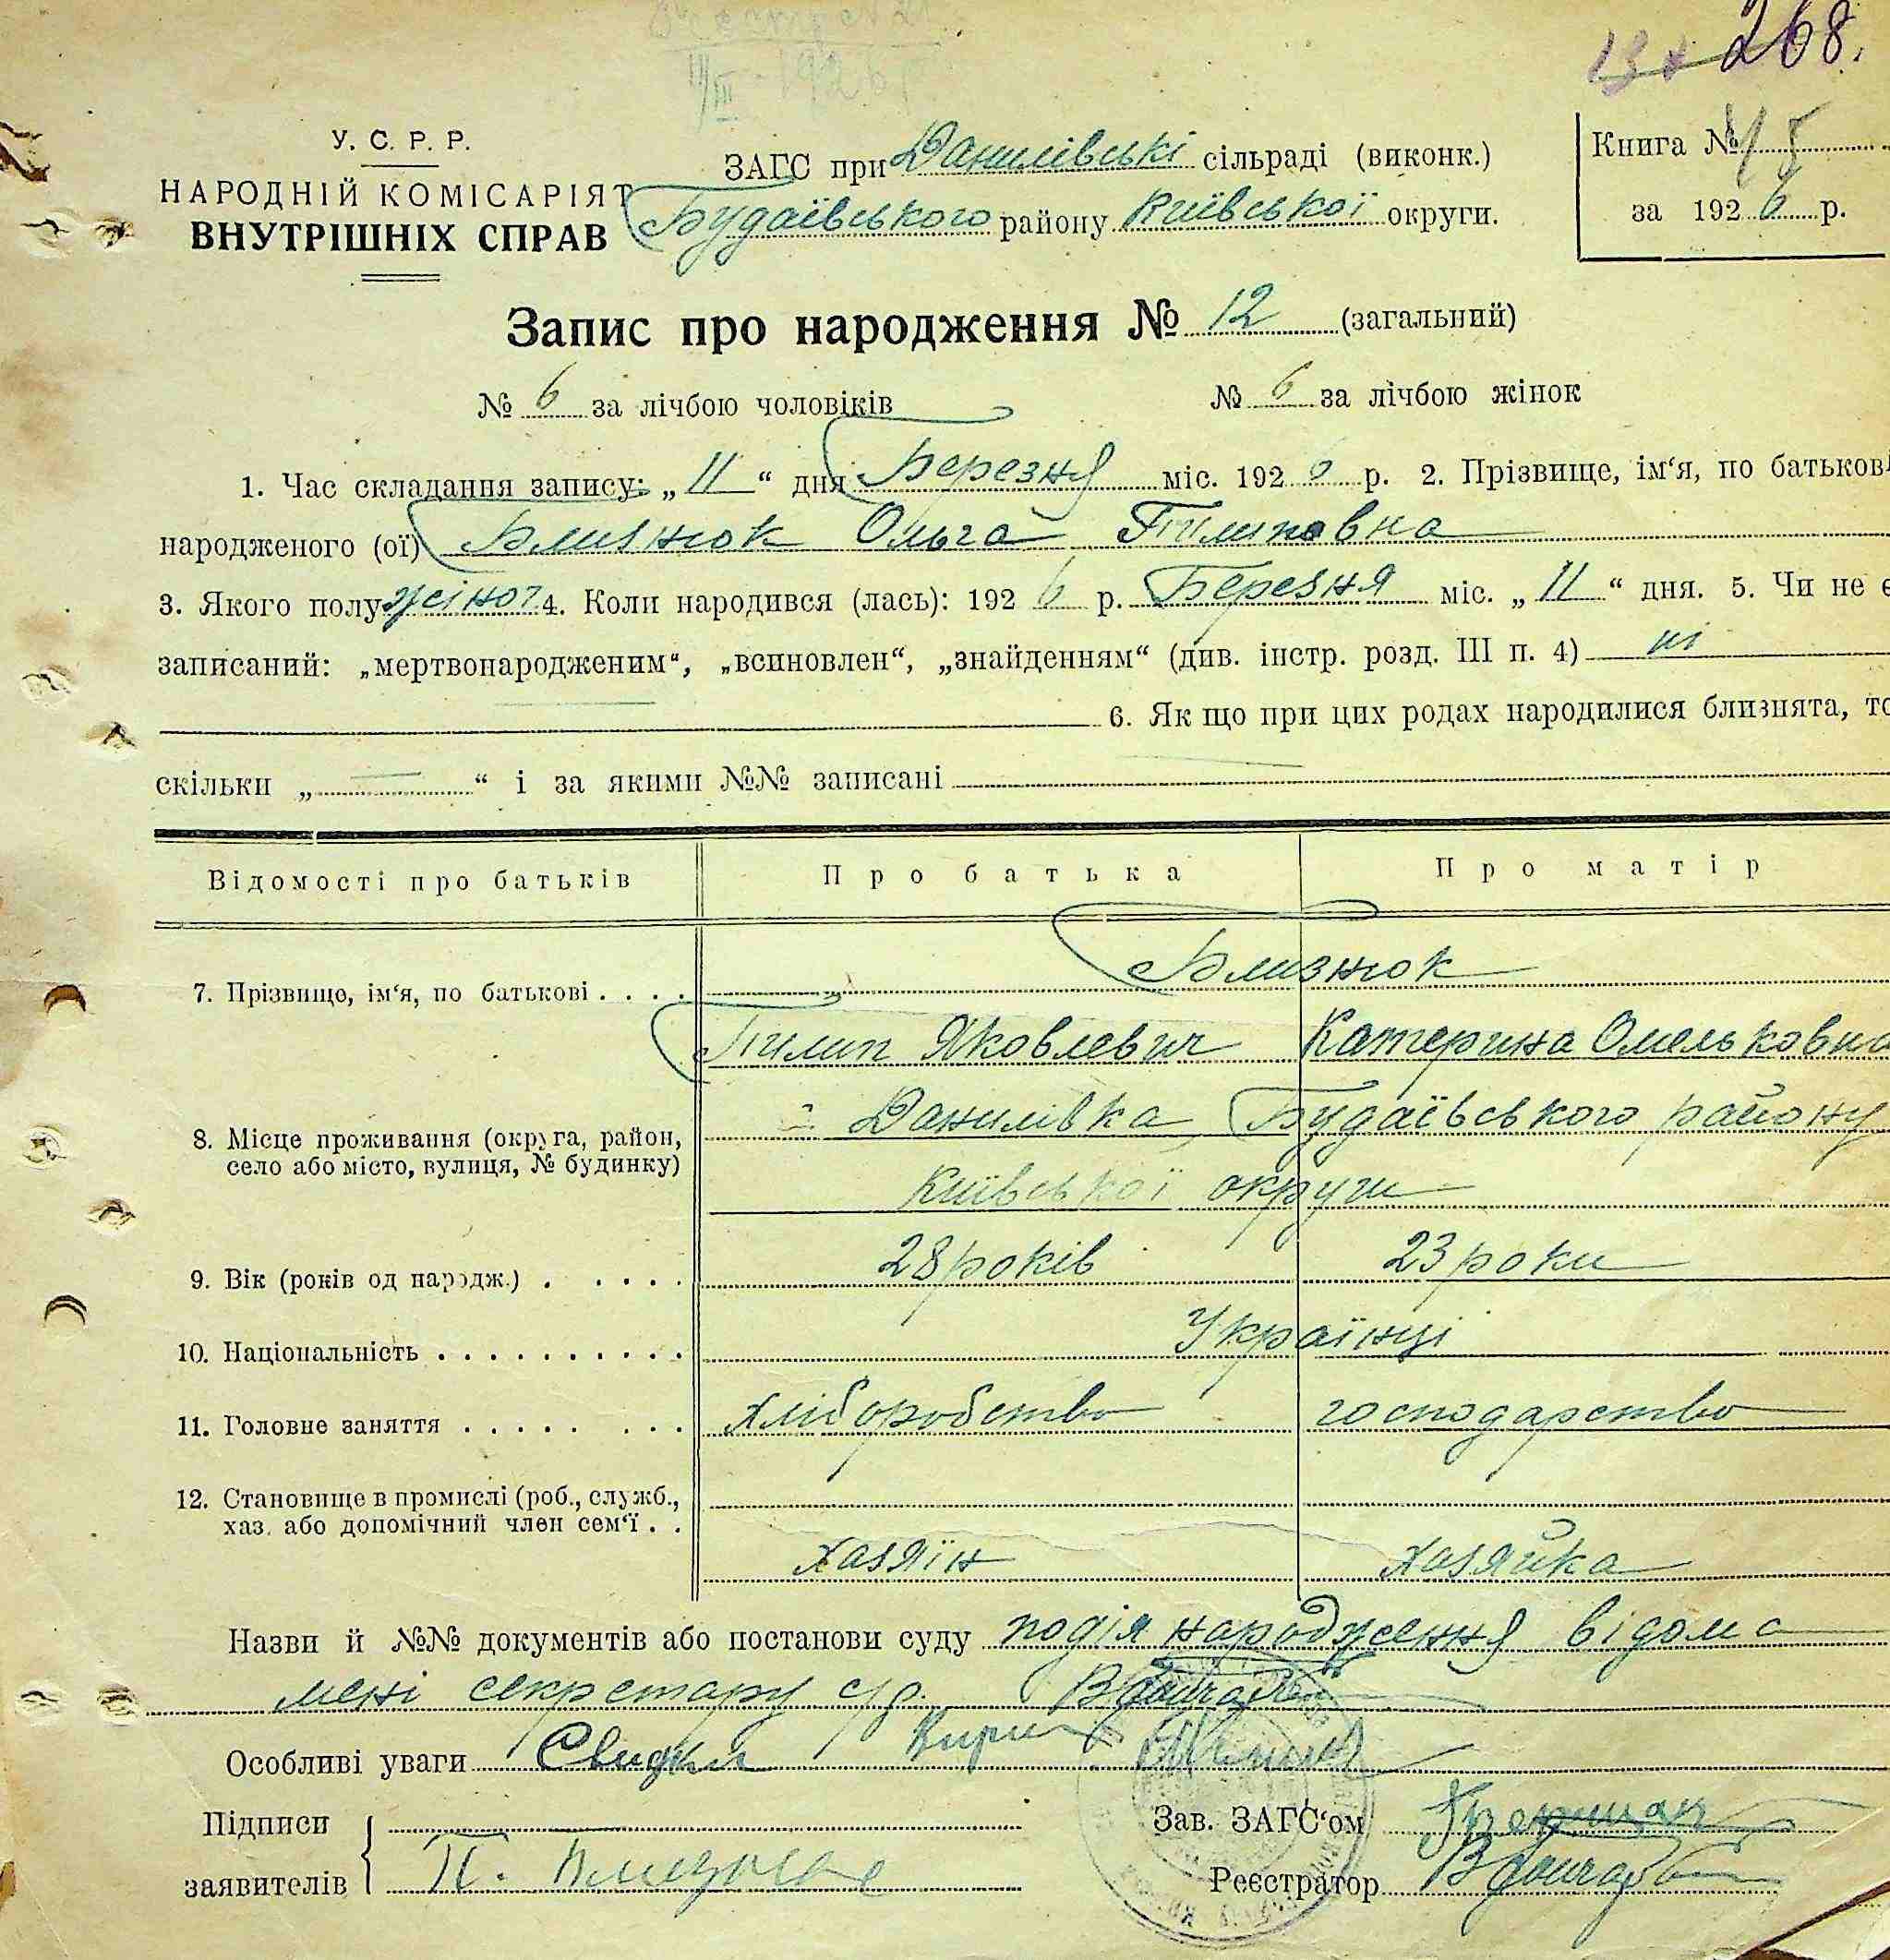 268.
У. С. Р. Р.
НАРОДНІЙ КОМІСАРІЯТ
ВНУТРІШНІХ СПРАВ
ЗАГС при Данилівські сільраді (виконк.)
Будаївського району Київської округи.
Книга №
за 1926 р.
Запис про народження № 12 (загальний)
№ 6 за лічбою чоловіків № 6 за лічбою жінок
1. Час складання запису: „11“ дня Березня міс. 1926 р. 2. Прізвище, ім‘я, по батькові
народженого (ої) Близнюк Ольга Пилиповна
3. Якого полу жіноч 4. Коли народився (лась): 1926 р. Березня міс. „11“ дня. 5. Чи не є
записаний: „мертвонародженим“, „всиновлен“, „знайденням“ (див. інстр. розд. III п. 4) ні
6. Як що при цих родах народилися близнята, то
скільки „ — “ і за якими №№ записані
Відомості про батьків Про батька Про матір
7. Прізвище, ім‘я, по батькові . . . . Близнюк
Пилип Яковлевич Катерина Омельковна
8. Місце проживання (округа, район, Данилівка Будаївського району
село або місто, вулиця, № будинку)
Київської округи
9. Вік (років од народж.) . . . . . 28 років 23 роки
10. Національність . . . . . . . . . . Українці
11. Головне заняття . . . . . . . . хліборобство господарство
12. Становище в промислі (роб., служб.,
хаз. або допомічний член сем‘ї . .
хазяїн хазяйка
Назви й №№ документів або постанови суду подія народження відома
мені секретару с/р.
Особливі уваги Свидки
Підписи
заявителів П.
Зав. ЗАГС‘ом
Реєстратор